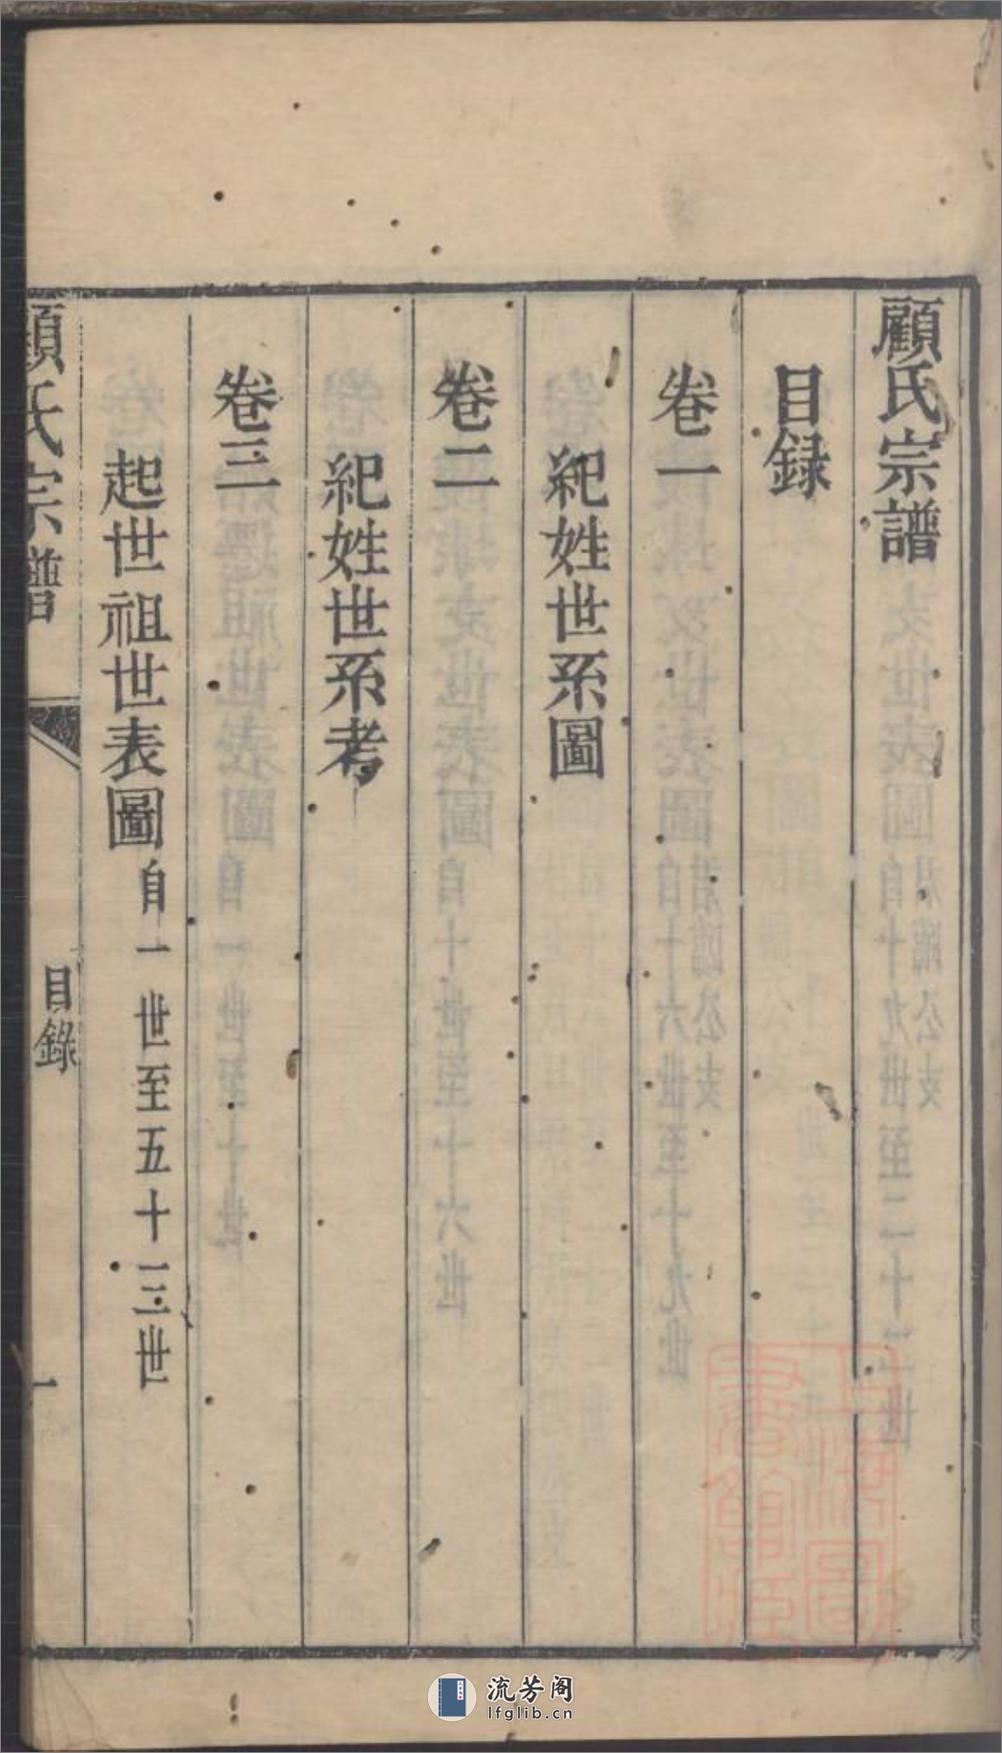 顧氏宗譜
目錄
卷一
紀姓世系圖
卷二
紀姓世系考
卷三
起世祖世表圖自一世至五十三世
顧氏宗譜
目錄
一
上海圖書館藏
流芳阁
lfglib.cn